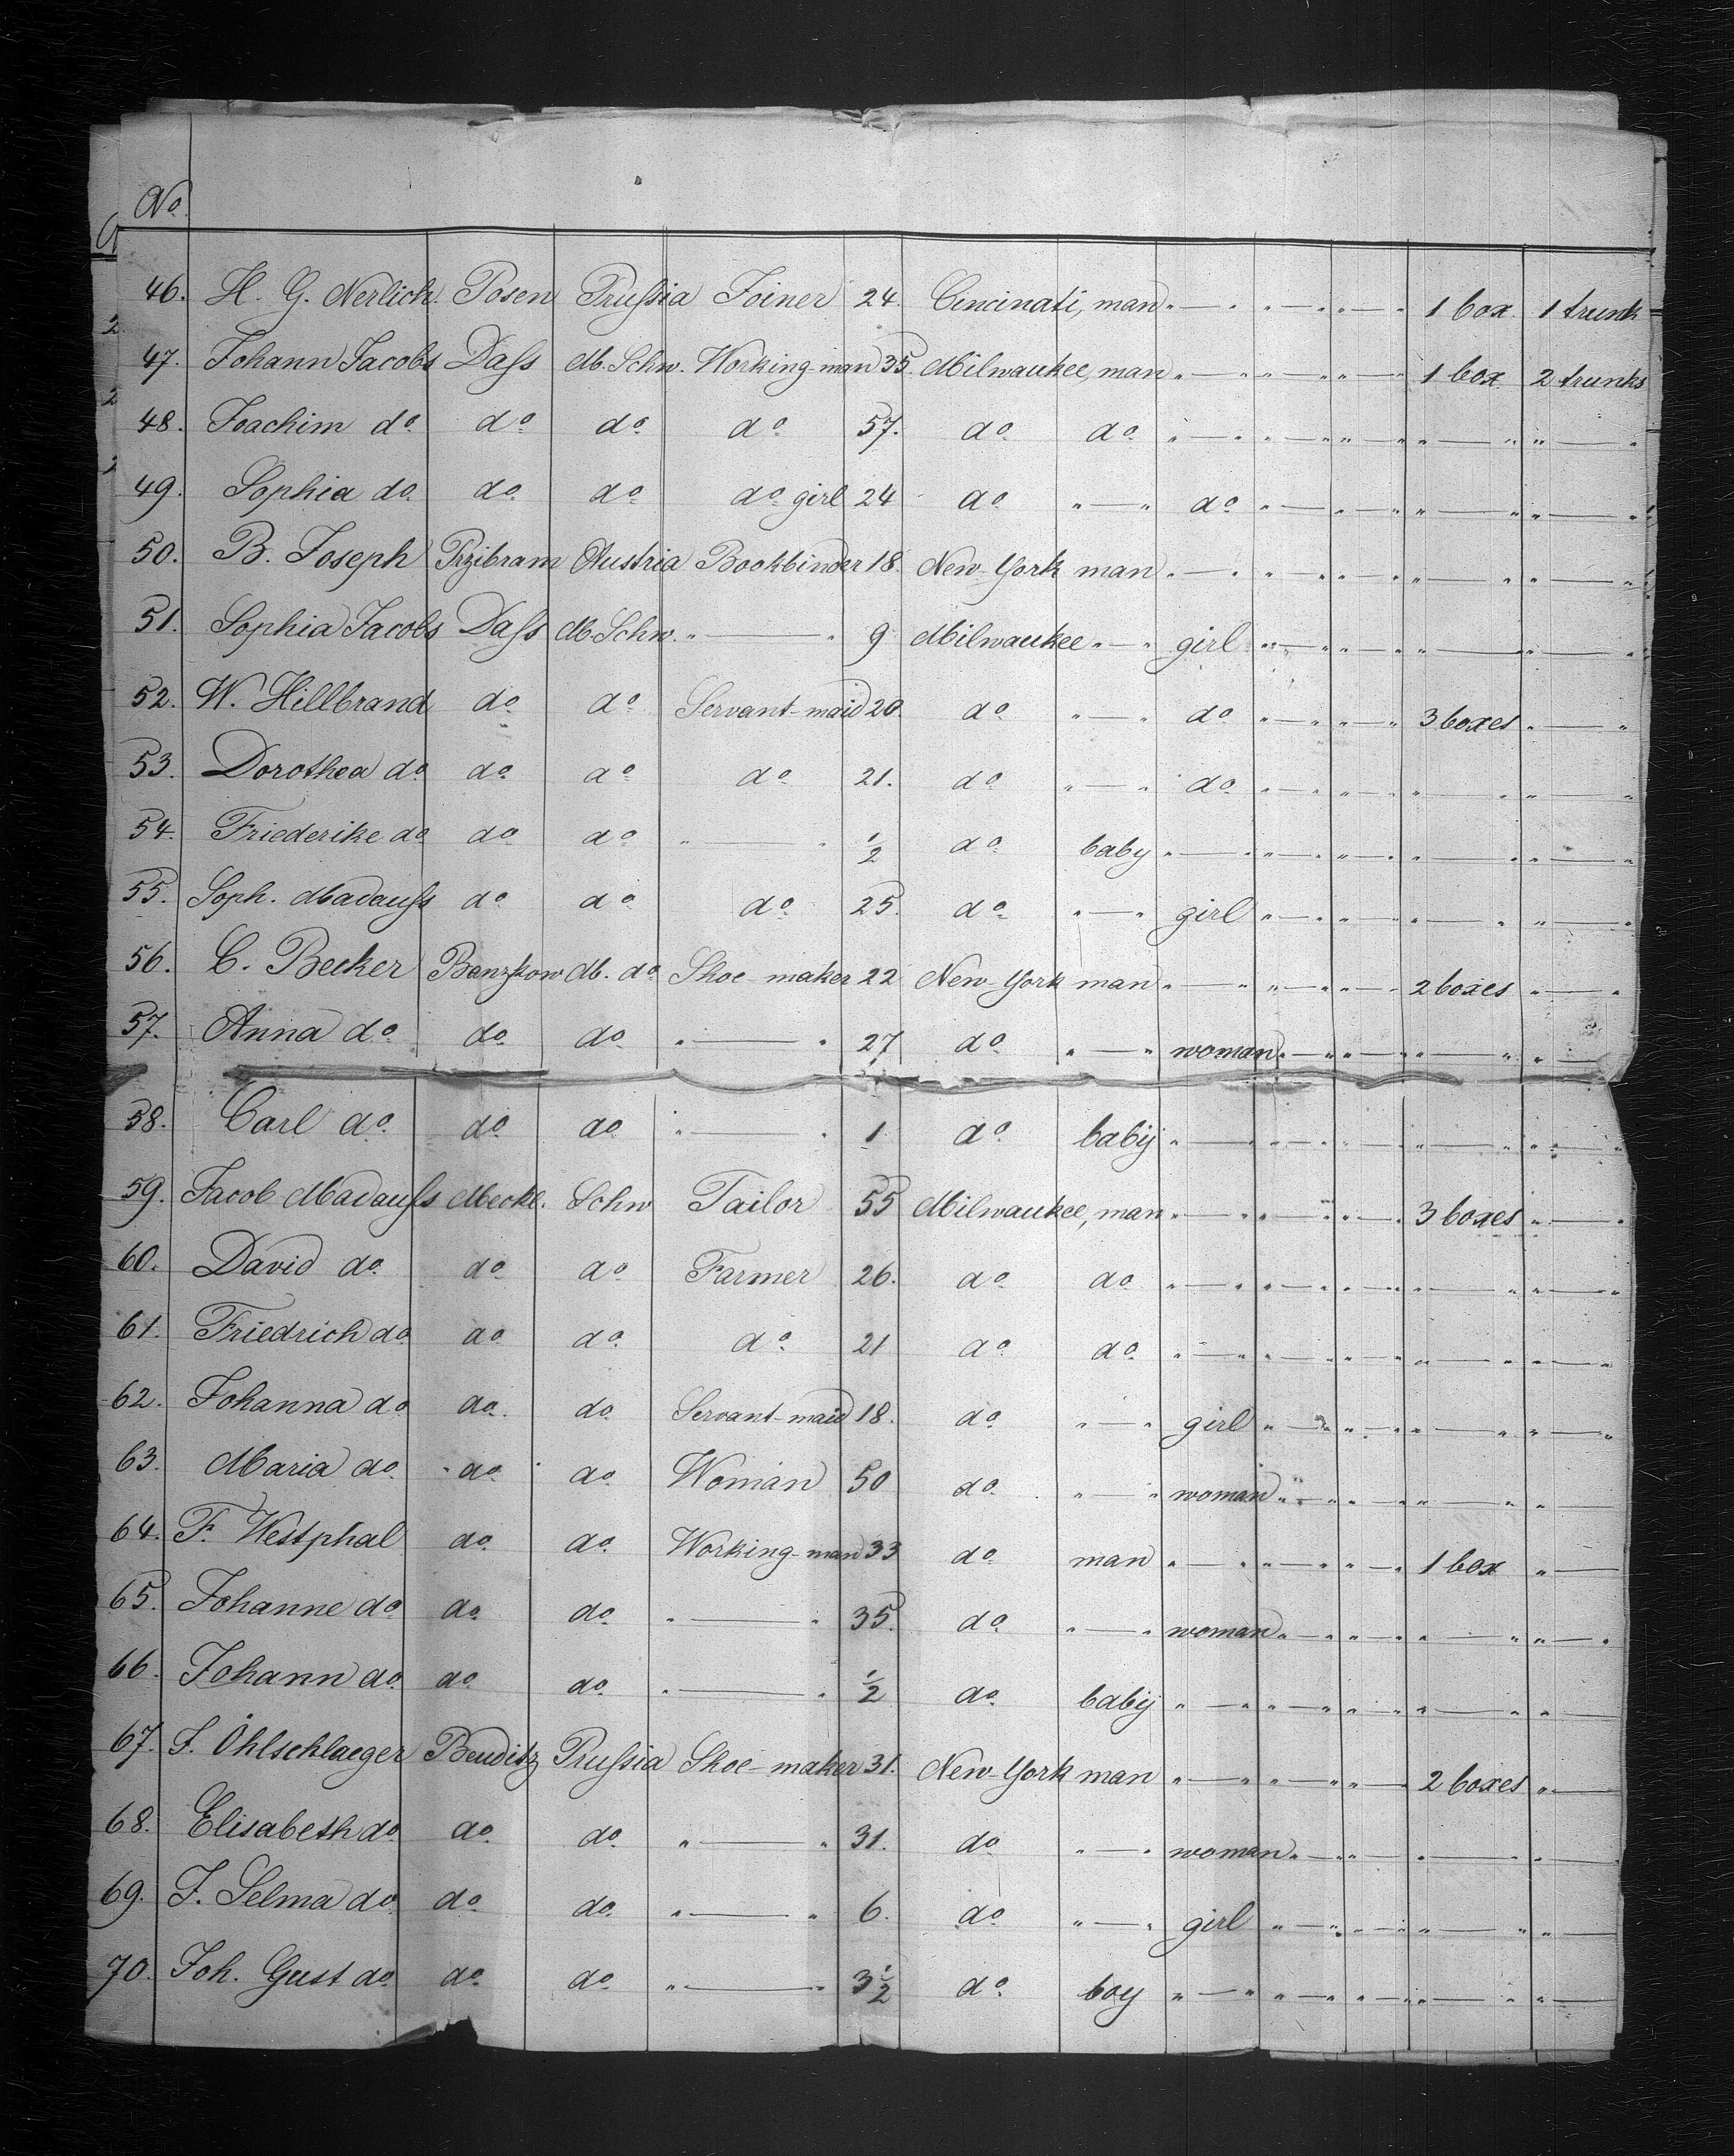 No.
46. H. G. Nerlich. Posen Prussia Joiner 24. Cincinati, man " — " " — " " " — " 1 box. 1 trunk
47. Johann Jacobs Dass M. Schw. Working-man 35. Milwaukee, man " — " " — " " " — " 1 box 2 trunks
48. Joachim do. do. do. do. 57. do. do. " — " " — " " " — " " — " " — "
49. Sophia do. do. do. do. girl 24 do. " — " do. " — " " — " " — " " — "
50. B. Joseph Przibram Austria Bookbinder 18. New-York man " — " " — " " " — " " — " " — "
51. Sophia Jacobs Dass M. Schw. " — " 9 Milwaukee " — " girl " — " " — " " — " " — "
52. W. Hillbrand do. do. Servant-maid 20. do. " — " do. " — " " — " 3 boxes " — "
53. Dorothea do. do. do. do. 21. do. " — " do. " — " " — " " — " " — "
54. Friederike do. do. do. " — " 1/2 do. baby " — " " — " " " — " " — " " — "
55. Soph. Madauss do. do. do. 25. do. " — " girl " — " " — " " — " " — "
56. C. Becker Banzkow M. do. Shoe-maker 22 New-York man " — " " — " " " — " 2 boxes " — "
57. Anna do. do. do. " — " 27 do. " — " woman " — " " — " " — " " —
58. Carl do. do. do. " — " 1 do. baby " — " " — " " " — " " — " " — "
59. Jacob Madauss Meckl. Schw Tailor 55 Milwaukee, man " — " " — " " " — " 3 boxes " — "
60. David do. do. do. Farmer 26. do. do. " — " " — " " " — " " — " " — "
61. Friedrich do. do. do. do. 21 do. do. " — " " — " " " — " " — " " — "
62. Johanna do. do. do. Servant-maid 18. do. " — " girl " — " " — " " — " " — "
63. Maria do. do. do. Woman 50 do. " — " woman " — " " — " " — " " —
64. F. Westphal do. do. Working-man 33 do. man " — " " — " " " — " 1 box " —
65. Johanne do. do. do. " — " 35. do. " — " woman " — " " — " " — " " — "
66. Johann do. do. do. " — " 1/2 do. baby " — " " — " " " — " " — " " —
67. F. Öhlschlaeger Beuditz Prussia Shoe-maker 31. New-York man " — " " — " " " — " 2 boxes " —
68. Elisabeth do. do. do. " — " 31. do. " — " woman " — " " — " " — " " —
69. F. Selma do. do. do. " — " 6. do. " — " girl " — " " — " " — " " —
70. Joh. Gust do. do. do. " — " 3 1/2 do. boy " — " " — " " " — " " — " " —